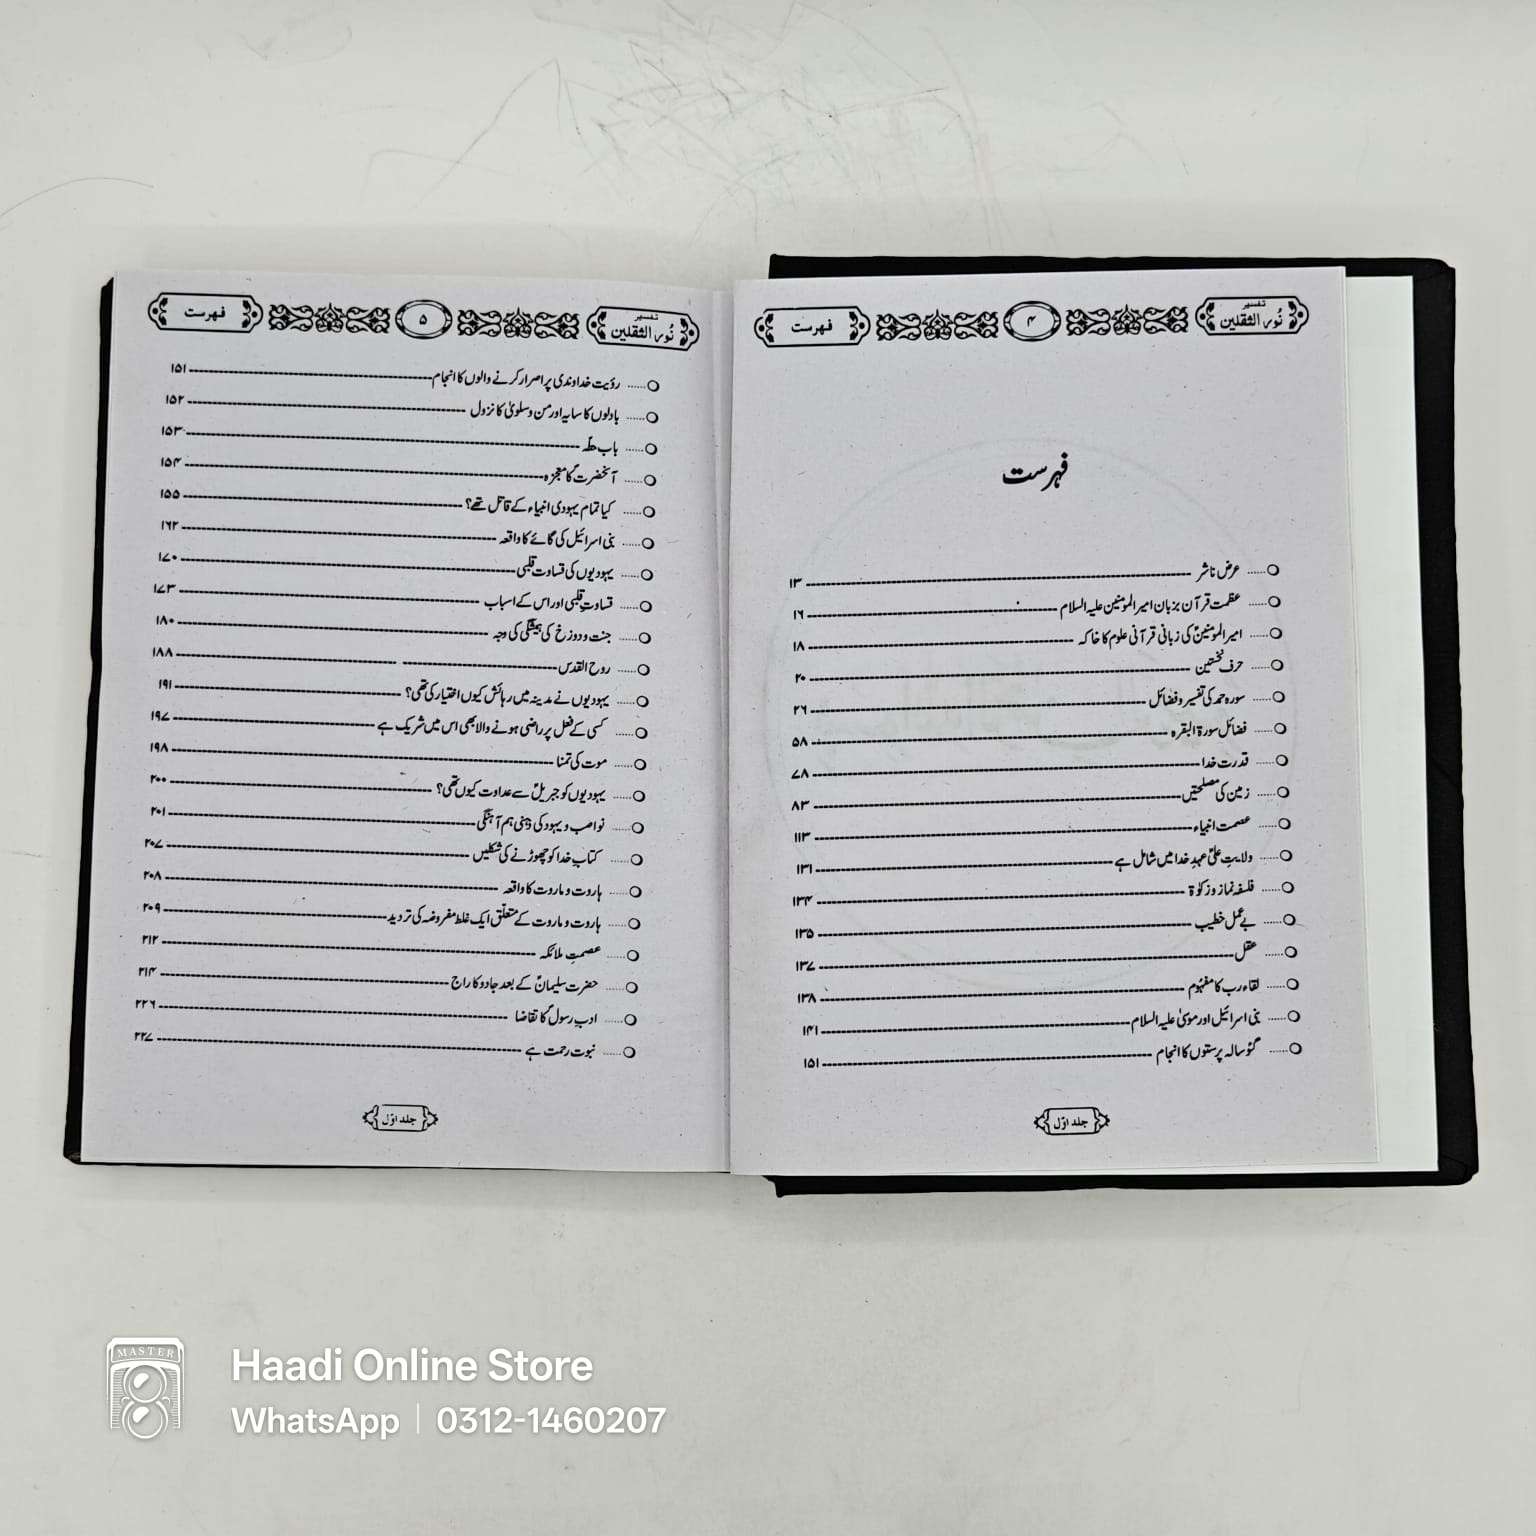 تفسیر نُور الثقلین ۴ فہرست
فہرست
عرض ناشر ۱۳
عظمت قرآن بزبان امیر المومنین علیہ السلام ۱۶
امیر المومنینؑ کی زبانی قرآنی علوم کا خاکہ ۱۸
حرف نخستین ۲۰
سورہ حمد کی تفسیر و فضائل ۲۶
فضائل سورۃ البقرہ ۵۸
قدرت خدا ۷۸
زمین کی مصلحتیں ۸۳
عصمت انبیاء ۱۱۳
ولایتِ علیؑ عہدِ خدا میں شامل ہے ۱۳۱
فلسفہ نماز و زکوٰۃ ۱۳۴
بے عمل خطیب ۱۳۵
عقل ۱۳۷
لقاء رب کا مفہوم ۱۳۸
بنی اسرائیل اور موسیٰ علیہ السلام ۱۴۱
گئو سالہ پرستوں کا انجام ۱۵۱
جلد اوّل
تفسیر نُور الثقلین ۵ فہرست
رؤیت خداوندی پر اصرار کرنے والوں کا انجام ۱۵۱
بادلوں کا سایہ اور من و سلویٰ کا نزول ۱۵۲
باب حطّہ ۱۵۳
آنحضرتؐ کا معجزہ ۱۵۴
کیا تمام یہودی انبیاء کے قاتل تھے؟ ۱۵۵
بنی اسرائیل کی گائے کا واقعہ ۱۶۲
یہودیوں کی قساوت قلبی ۱۷۰
قساوتِ قلبی اور اس کے اسباب ۱۷۳
جنت و دوزخ کی ہمیشگی کی وجہ ۱۸۰
روح القدس ۱۸۸
یہودیوں نے مدینہ میں رہائش کیوں اختیار کی تھی؟ ۱۹۱
کسی کے فعل پر راضی ہونے والا بھی اس میں شریک ہے ۱۹۷
موت کی تمنا ۱۹۸
یہودیوں کو جبریلؑ سے عداوت کیوں تھی؟ ۲۰۰
نواصب و یہود کی ذہنی ہم آہنگی ۲۰۱
کتابِ خدا کو چھوڑنے کی شکلیں ۲۰۷
ہاروت و ماروت کا واقعہ ۲۰۸
ہاروت و ماروت کے متعلّق ایک غلط مفروضہ کی تردید ۲۰۹
عصمتِ ملائکہ ۲۱۲
حضرت سلیمانؑ کے بعد جادو کا راج ۲۱۴
ادبِ رسولؐ کا تقاضا ۲۲۶
نبوت رحمت ہے ۲۲۷
جلد اوّل
MASTER
Haadi Online Store
WhatsApp | 0312-1460207